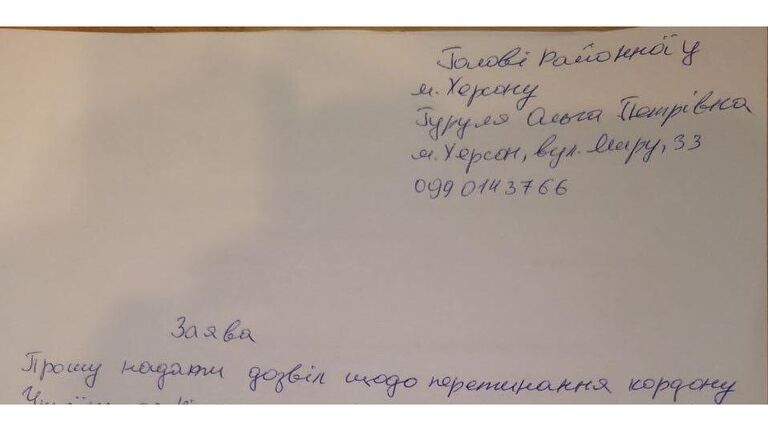 Голові районної у
м. Херсону
Гуруля Ольга Петрівна
м. Херсон, вул. Миру, 33
0990143766
Заява
Прошу надати дозвіл щодо перетинання кордону